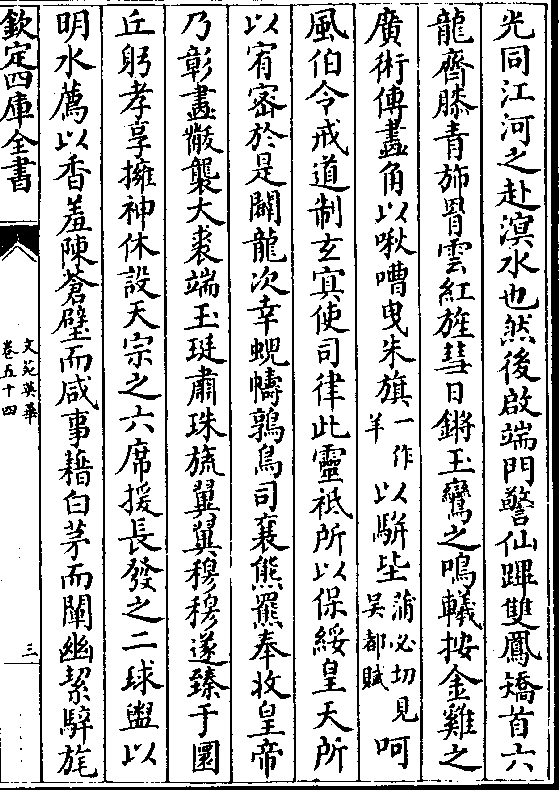 光同江河之赴溟水也然後啟端門警仙蹕雙鳳矯首六
龍齊膝青斾罥雲紅旌彗日鏘玉鸞之鳴轙按金雞之
廣術傳畫角以啾嘈曳朱旗一作羊以駢坒蒲必切見吳都賦呵
風伯令戒道制玄㝠使司律此靈祇所以保綏皇天所
以宥密於是闢龍次幸蜺幬鶉鳥司衮熊羆奉牧皇帝
乃彰畫黻襲大裘端玉珽肅珠旒翼翼穆穆遂臻于圜
丘躬孝享擁神休設天宗之六席援長發之二球盥以
明水薦以香羞陳蒼璧而咸事藉白茅而闡幽絜騂旄
欽定四庫全書
文苑英華
卷五十四
三